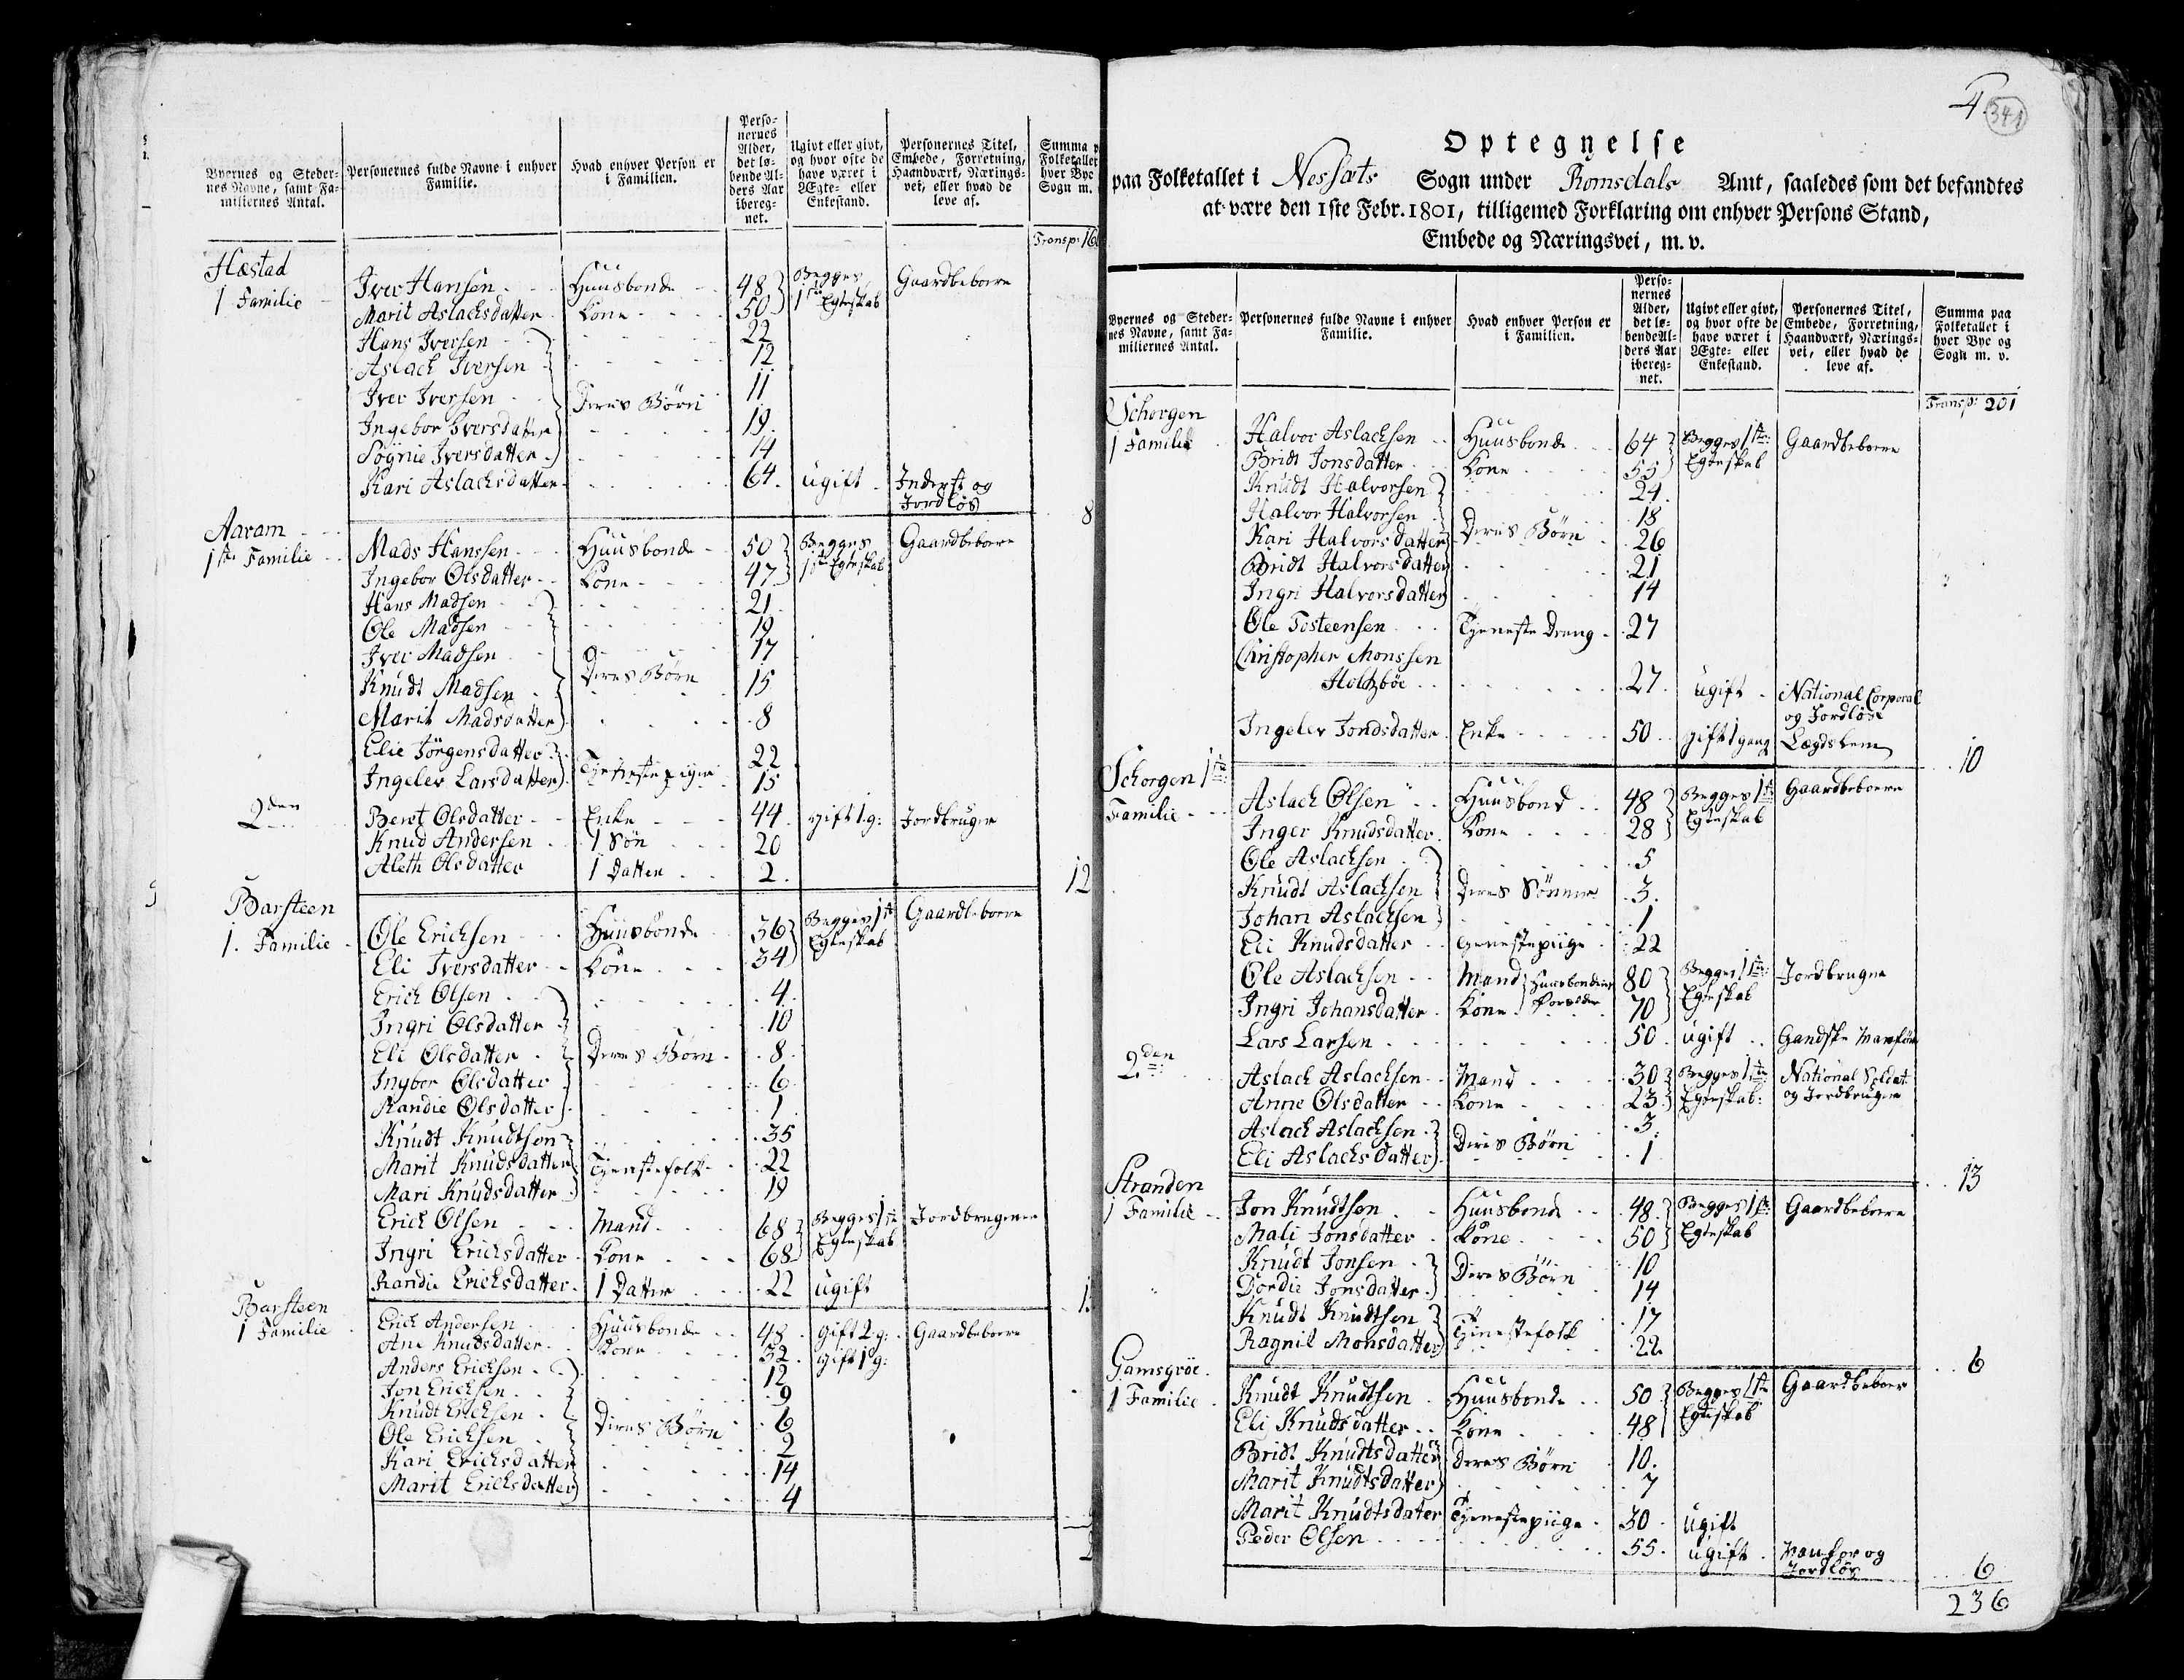 Byernes og Steder-
nes Navne, samt Fa-
miliernes Antal.
Personernes fulde Navne i enhver
Familie.
Hvad enhver Person er
i Familien.
Perso-
nernes
Alder,
det lø-
bende Al-
ders Aar
ibereg-
net.
Ugivt eller givt,
og hvor ofte de
have været i
Ægte- eller
Enkestand.
Personernes Titel,
Embede, Forretning,
Haandværk, Nærings-
vei, eller hvad de
leve af.
Summa p
Folketallet
hver Bye
Sogn m.
Transp: 16
Hæstad
1 Familie
Iver Hansen Huusbonde 48 Begges Gaardbeboere
Marit Aslachsdatter Kone 50 1ste Egteskab
Hans Iversen 22
Aslach Iversen 12
Iver Iversen Deres Børn 11
Ingebor Iversdatter 19
Søgnie Iversdatter 14
Kari Aslachsdatter 64 ugift Inderst og
Jordløs
8
Aaram
1ste Familie
Mads Hanssen Huusbonde 50 Begges Gaardbeboere
Ingebor Olsdatter Kone 47 1ste Egteskab
Hans Madsen 21
Ole Madsen 19
Iver Madsen 17
Knudt Madsen Deres Børn 15
Marit Madsdatter 8
Elie Jørgensdatter 22
Ingelev Larsdatter Tienestepiger 15
2den Berit Olsdatter Enke 44 gift 1 g: Jordbruger
Knud Andersen 1 Søn 20
Aleth Olsdatter 1 Datter 2
12
Barsteen
1. Familie
Ole Erichsen Huusbonde 36 Begges 1ste Gaardbeboere
Eli Iversdatter Kone 34 Egteskab
Erich Olsen 4
Ingri Olsdatter 10
Eli Olsdatter Deres Børn 8
Ingbor Olsdatter 6
Randie Olsdatter 1
Knudt Knudtsøn 35
Marit Knudsdatter Tienestefolk 22
Mari Knudsdatter 19
Erich Olsen Mand 68 Begges 1ste Jordbrugere
Ingri Erichsdatter Kone 68 Egteskab
Randie Erichsdatter 1 Datter 22 ugift
1
Barsteen
1 Familie
Erich Andersen Huusbonde 48 gift 2 g: Gaardbeboere
Ane Knudsdatter Kone 32 gift 1 g:
Anders Erichsen 12
Jon Erichsen 9
Knudt Erichsen 6
Ole Erichsen Deres Børn 2
Kari Erichsdatter 14
Marit Erichsdatter 4
4
341
Optegnelse
paa Folketallet i Nessæts Sogn under Romsdals Amt, saaledes som det befandtes
at være den 1ste Febr. 1801, tilligemed Forklaring om enhver Persons Stand,
Embede og Næringsvei, m. v.
Byernes og Steder-
nes Navne, samt Fa-
miliernes Antal.
Personernes fulde Navne i enhver
Familie.
Hvad enhver Person er
i Familien.
Perso-
nernes
Alder,
det lø-
bende Al-
ders Aar
ibereg-
net.
Ugivt eller givt,
og hvor ofte de
have været i
Ægte- eller
Enkestand.
Personernes Titel,
Embede, Forretning,
Haandværk, Nærings-
vei, eller hvad de
leve af.
Summa paa
Folketallet i
hver Bye og
Sogn m. v.
Transp: 201
Schorgen
1 Familie
Halvor Aslachsen Huusbonde 64 Begges 1ste: Gaardbeboere
Bridt Jonsdatter Kone 55 Egteskab
Knudt Halvorsen 24
Halvor Halvorsen 18
Kari Halvorsdatter Deres Børn 26
Bridt Halvorsdatter 21
Ingri Halvorsdatter 14
Ole Tosteensen Tieneste Dreng 27
Christopher Monssen
Holtzbøe 27 ugift National Corporal
og Jordløse
Ingelev Jondsdatter Enke 50 gift 1 gang Lægdslem
10
Schorgen 1ste
Familie
Aslach Olsen Huusbond 48 Begges 1ste Gaardbeboere
Inger Knudsdatter Kone 28 Egteskab
Ole Aslachsen 5
Knudt Aslachsen Deres Sønner 3
Johan Aslachsen 1
Eli Knudsdatter Tienestepiige 22
Ole Aslachsen Mand Huusbondens 80 Begges 1ste: Jordbrugere
Ingri Johansdatter Kone Forældre 70 Egteskab
Lars Larsen 50 ugift Gandske Vanføre
2den
Aslach Aslachsen Mand 30 Begges 1ste National Soldat
Anne Olsdatter Kone 23 Egteskab: og Jordbruger
Aslach Aslachsen 3
Eli Aslachsdatter Deres Børn 1
13
Stranden
1 Familie
Jon Knudtsen Huusbonde 48 Begges 1ste: Gaardbeboere
Mali Jonsdatter Kone 50 Egteskab
Knudt Jonsen 10
Dordie Jonsdatter Deres Børn 14
Knudt Knudtsen 17
Ragnil Monsdatter Tienestefolk 22
6
Gamsgröe
1 Familie
Knudt Knudtsen Huusbonde 50 Begges 1ste Gaardbeboer
Eli Knudsdatter Kone 48 Egteskab
Bridt Knudtsdatter Deres Børn 10
Marit Knudtsdatter 7
Marit Knudtsdatter Tienestepiige 30 ugift
Peder Olsen 55 ugift Vanfør og
Jordløs
6
236